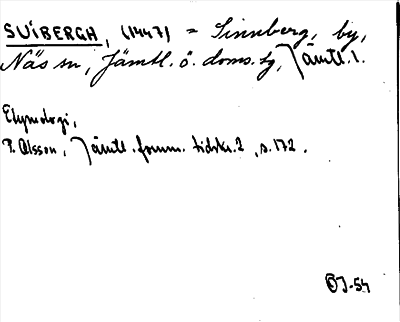 SUIBERGH, (1447) = Sinnberg, by,
Näs sn, Jämtl. ö. doms. tg, Jämtl. l.
Etymologi,
P. Olsson, Jämtl. fornm. tidskr. 2, s. 172.
ÖJ-54